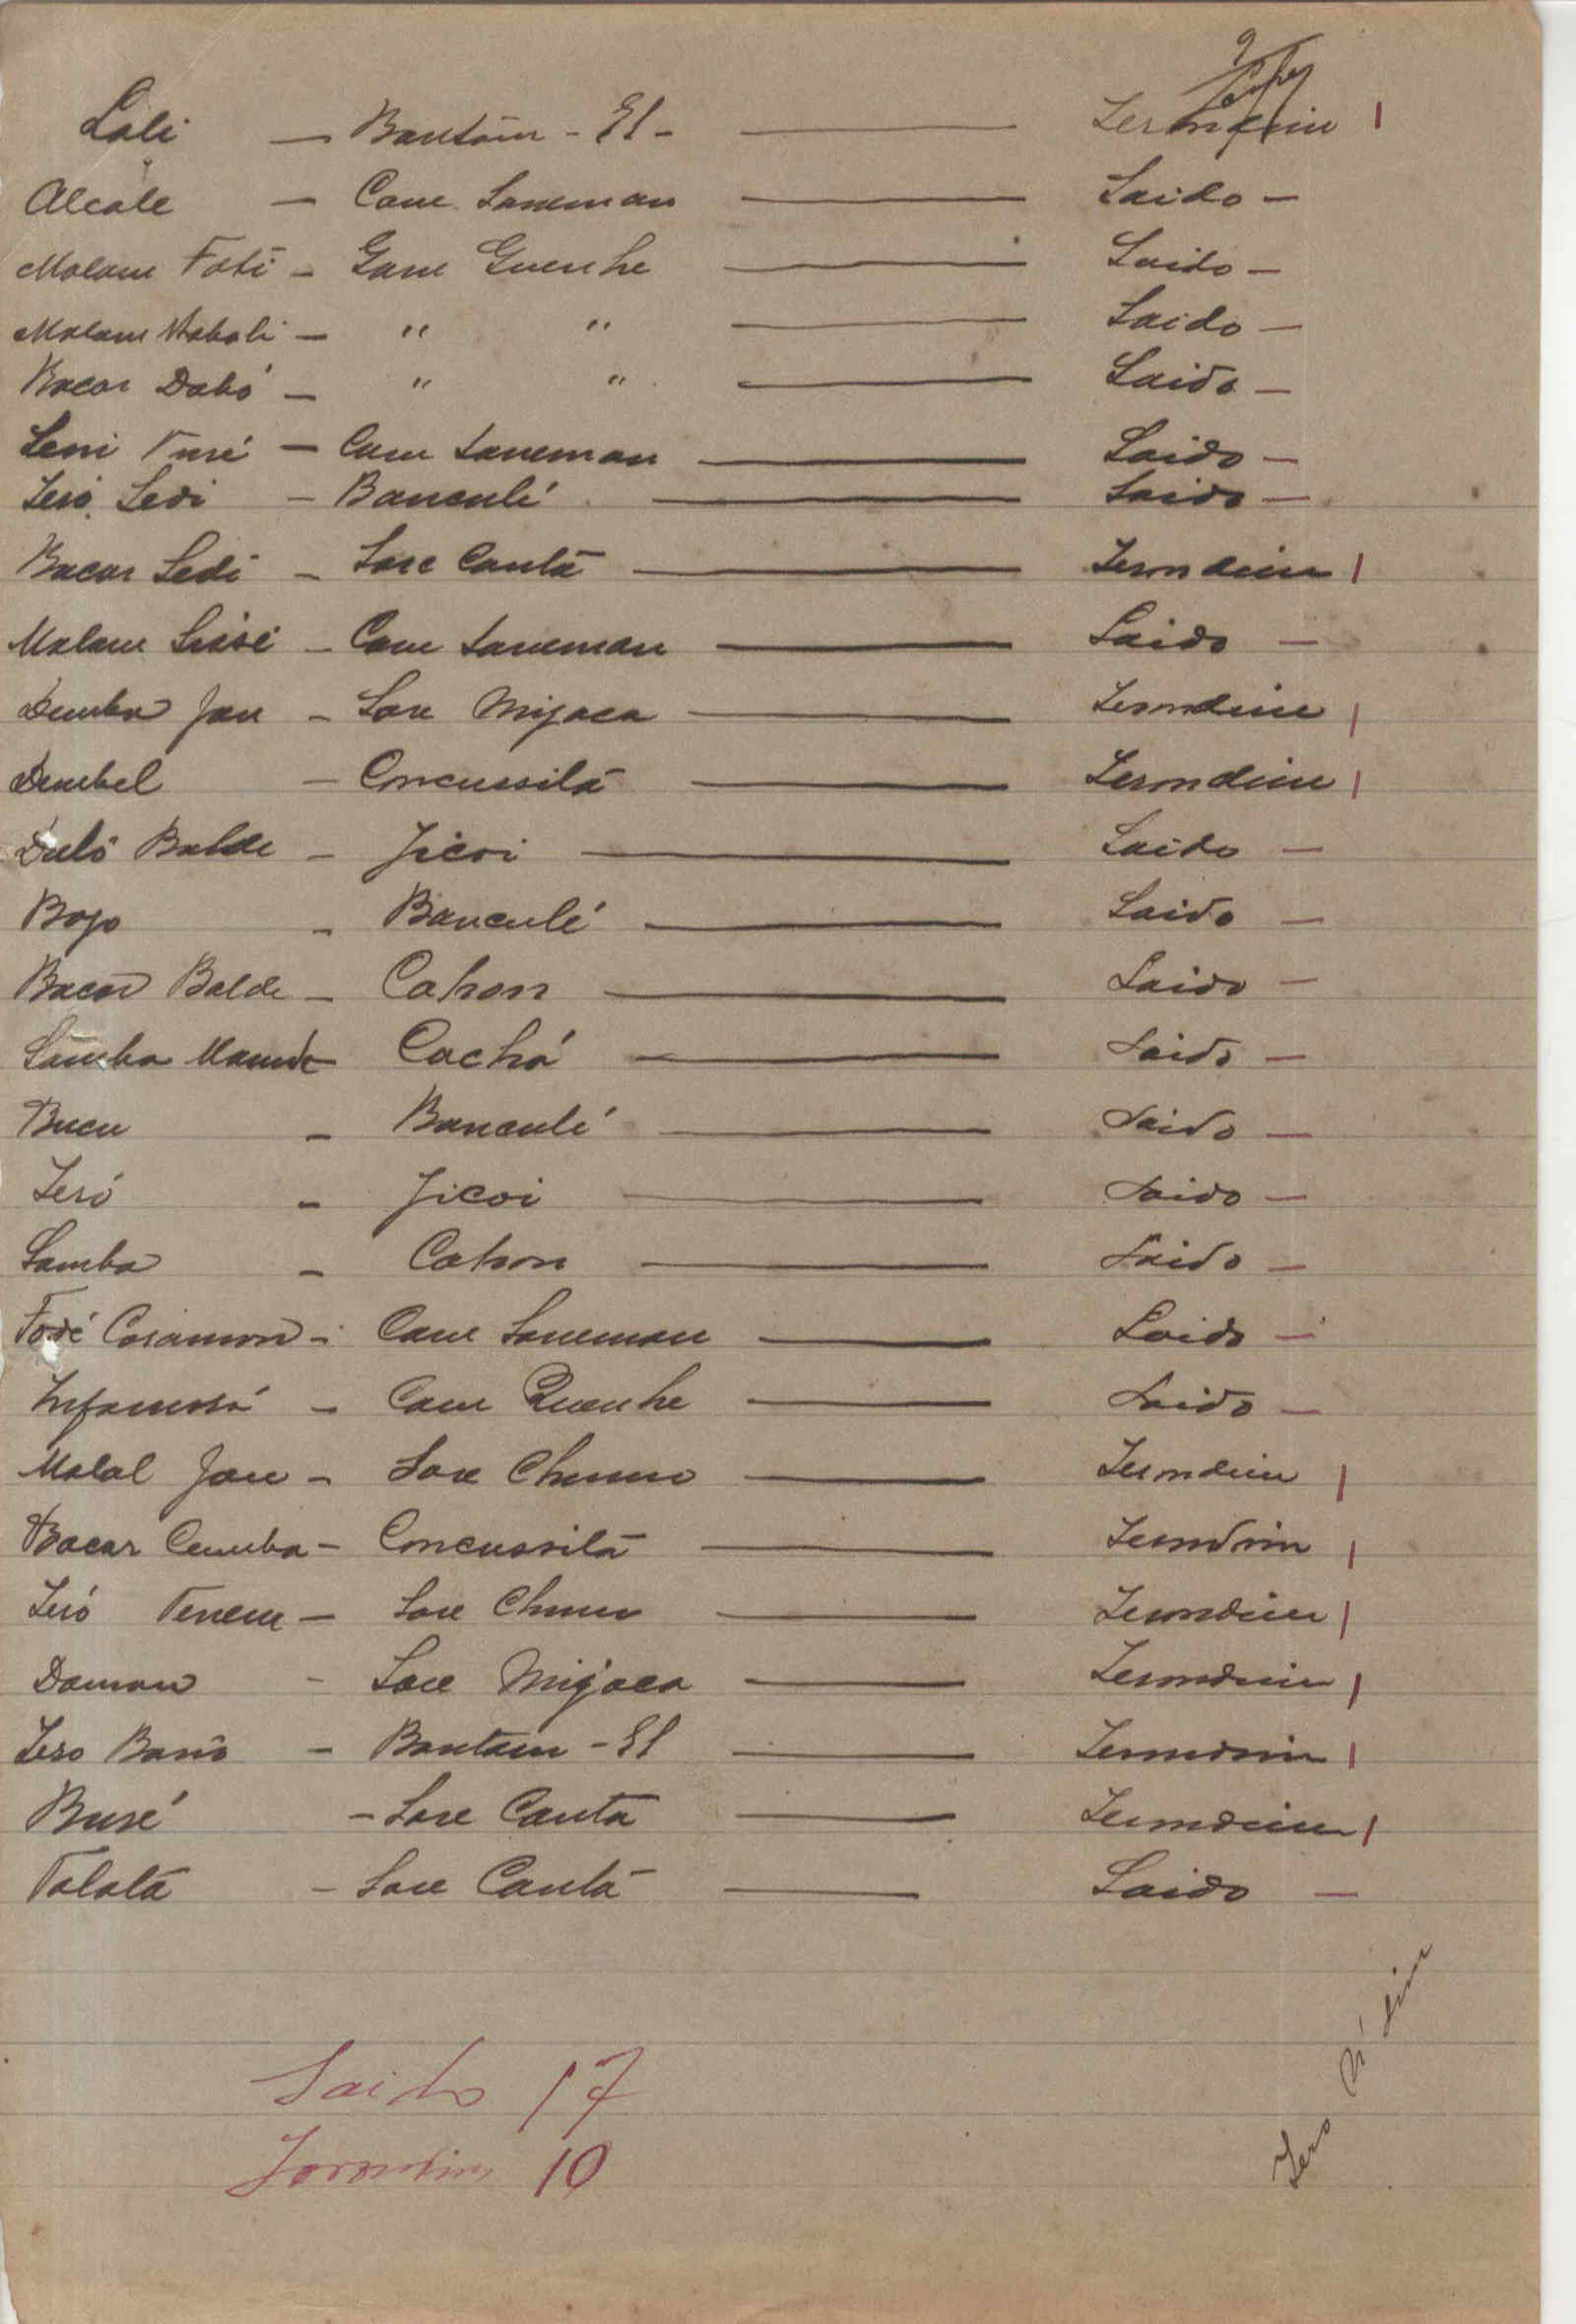 Lali — Bantām - El - — Sermdim |
Alcale — Cam Saneman — Saido —
Malam Fati — Gam Guenhe — Saido —
Malam Nabali — " " — Saido —
Bacar Dabó — " " — Saido —
Seni Turé — Cam Saneman — Saido —
Seró Sedi — Banculé — Saido —
Bacar Sedi — Sare Cantā — Sermdim |
Malam Sissé — Cam Saneman — Saido —
Demba Jau — Sare Mijaca — Sermdim |
Dembel — Concussilā — Sermdim |
Duló Balde — Jicoi — Saido —
Bojo — Banculé — Saido —
Bacar Balde — Cahon — Saido —
Samba — Cachó — Saido —
Bucu — Banculé — Saido —
Seró — Jicoi — Saido —
Samba — Cahon — Saido —
Fodé — Cam Saneman — Saido —
Infamará — Cam Quenhe — Saido —
Malal Jau — Sare — Sermdim |
Bacar Cumba — Concussilā — Sermdim |
Seró Tenem — Sare — Sermdim |
Daman — Sare Mijaca — Sermdim |
Sero — Bantam - El — Sermdim |
Buré — Sare Canta — Sermdim |
Talatā — Sare Cantā — Saido —
Saido 17
10